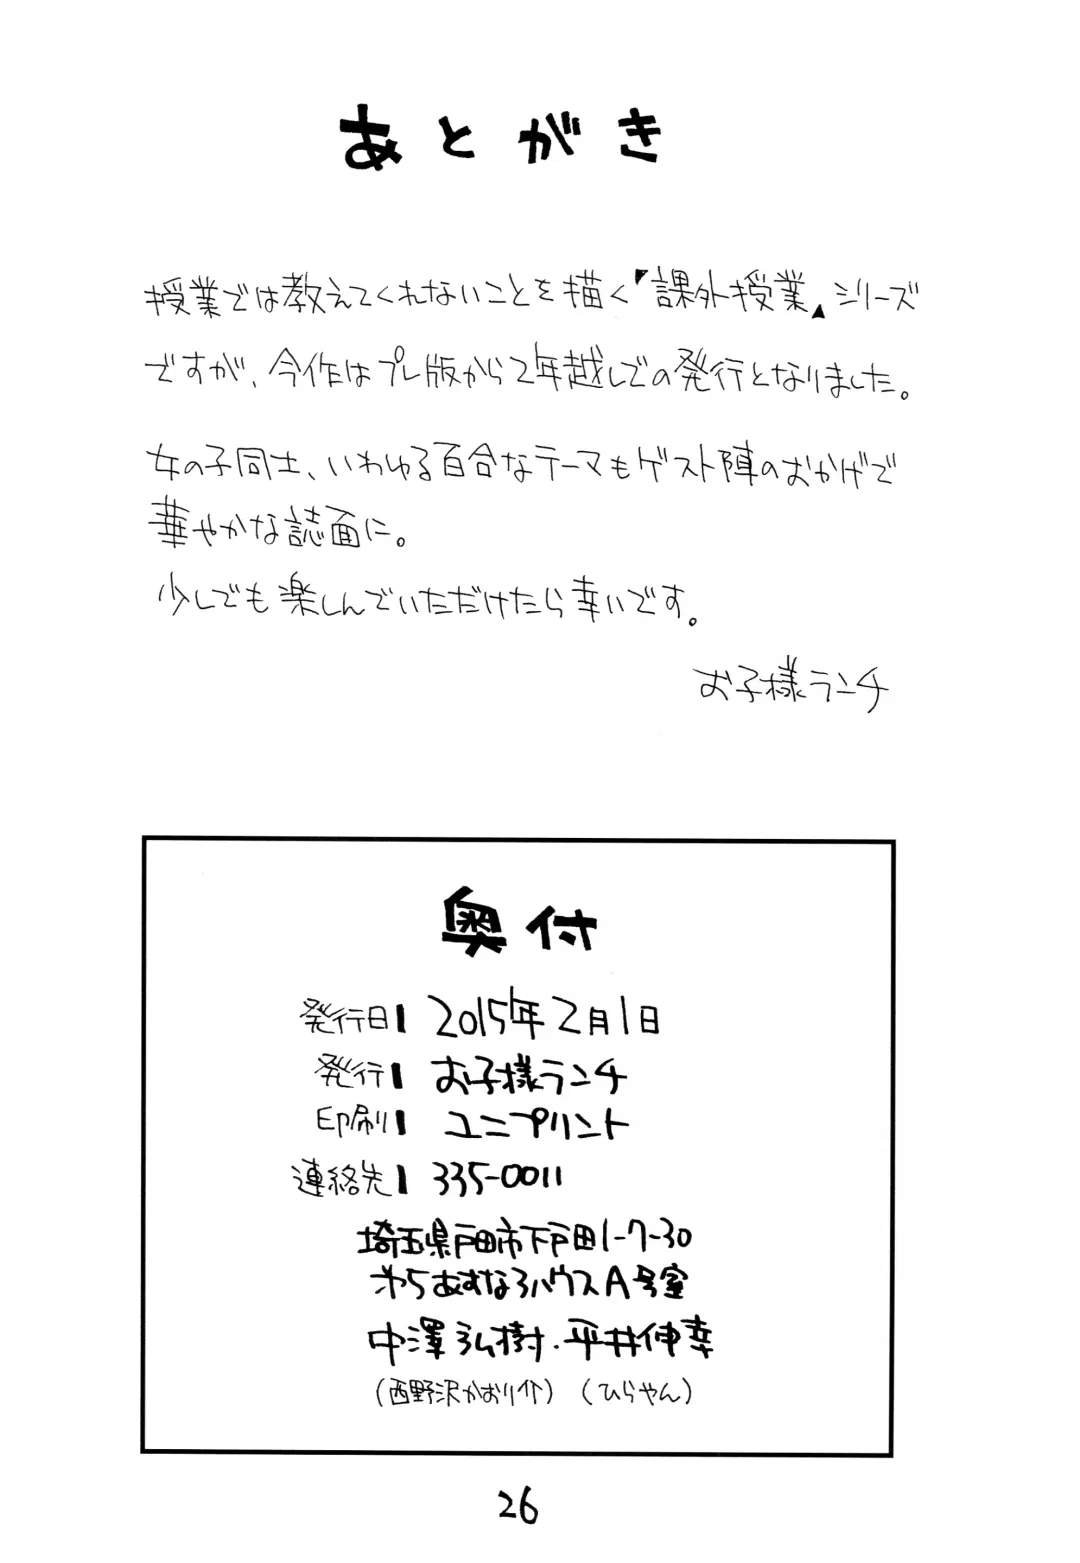 あとがき
授業では教えてくれないことを描く「課外授業」シリーズ
ですが、今作はプレ版から2年越しでの発行となりました。
女の子同士、いわゆる百合なテーマもゲスト陣のおかげで
華やかな誌面に。
少しでも楽しんでいただけたら幸いです。
お子様ランチ
奥付
発行日 2015年2月1日
発行 お子様ランチ
印刷 ユニプリント
連絡先 335-0011
埼玉県戸田市下戸田1-7-30
第5あすなろハウスA号室
中澤弘樹・平井伸幸
(西野沢かおり介) (ひらやん)
26